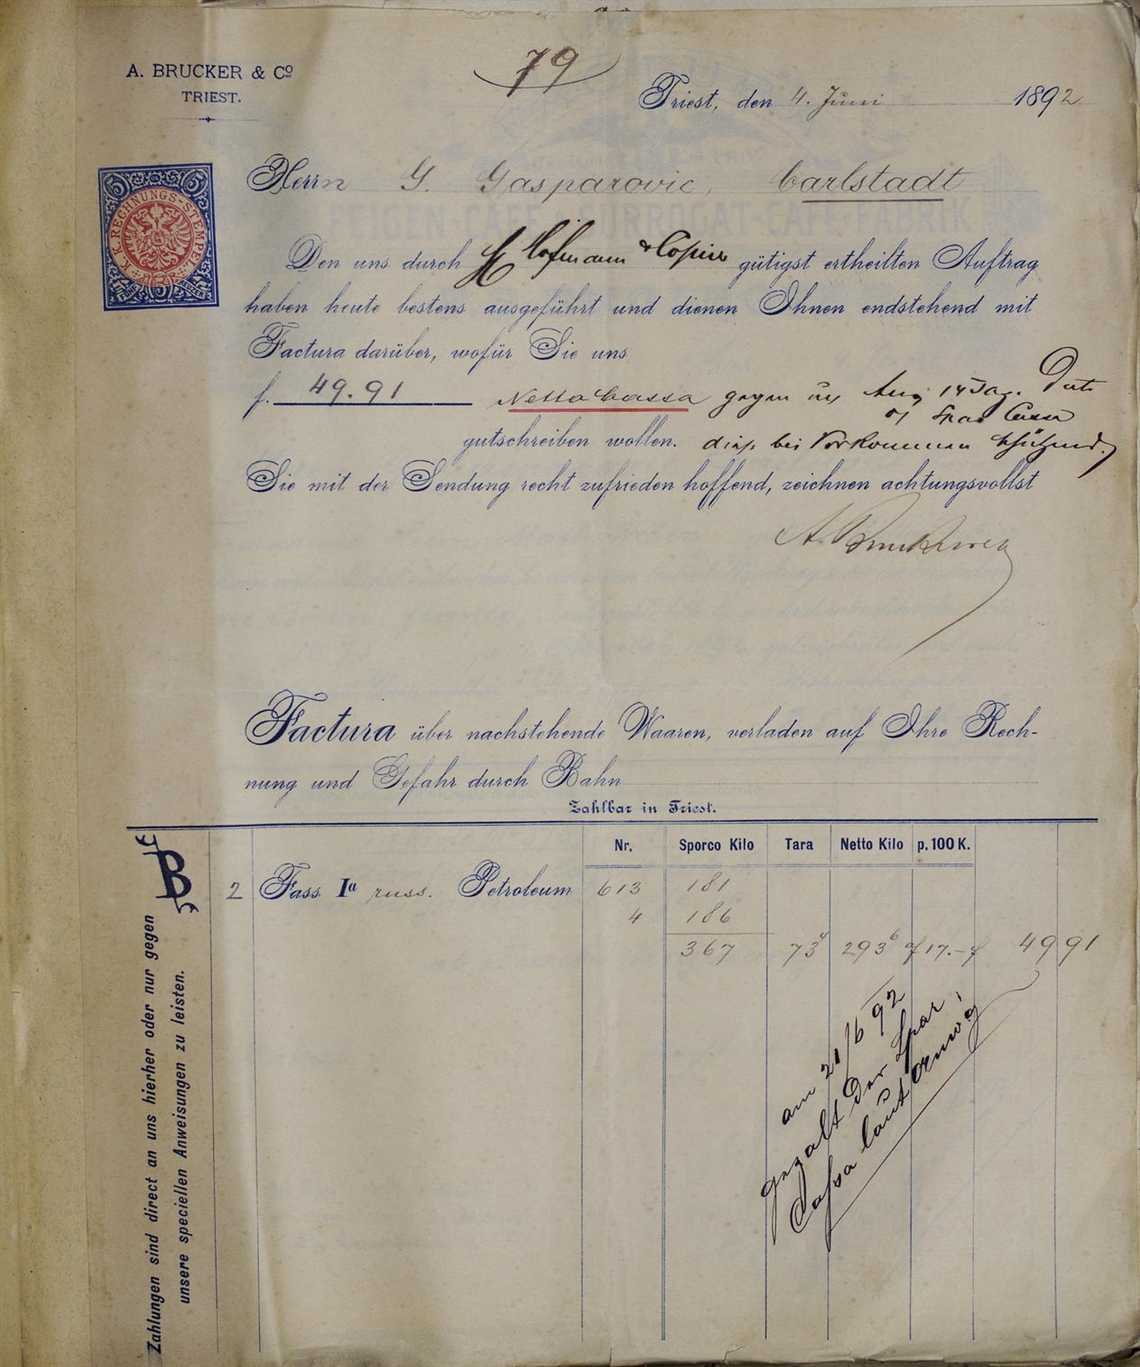 79
A. BRUCKER & Co
TRIEST.
Triest, den 4. Juni 1892
5 5
K. K. RECHNUNGS-STEMPEL
Herrn G. Gasparovic, Carlstadt
FEIGEN-CAFÉ SURROGAT-CAFÉ FABRIK
Den uns durch H Hofmann & Copier gütigst ertheilten Auftrag
haben heute bestens ausgeführt und dienen Ihnen endstehend mit
Factura darüber, wofür Sie uns
f. 49.91 Netto Cassa gegen 14 Tag. Dato
Spar Cassa
gutschreiben wollen. bei Vorkommen
Sie mit der Sendung recht zufrieden hoffend, zeichnen achtungsvollst
A. Brucker
Factura über nachstehende Waaren, verladen auf Ihre Rech-
nung und Gefahr durch Bahn
Zahlbar in Triest.
Nr. Sporco Kilo Tara Netto Kilo p. 100 K.
B
2 Fass Ia russ. Petroleum 613 181
4 186
367 73 4 293 6 f 17.– f 49 91
am 21/6 92
gezalt der Spar
Cassa laut
Zahlungen sind direct an uns hierher oder nur gegen
unsere speciellen Anweisungen zu leisten.